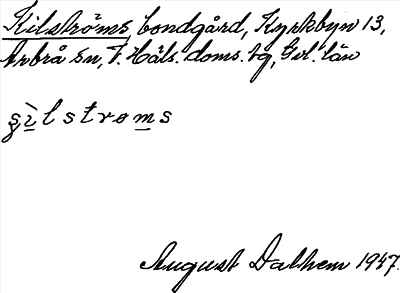 Kilströms bondgård, Kyrkbyn 13,
Arbrå sn, V. Häls. doms. tg, Gvl. län
ʂìlstrøms
August Dalhem 1947.